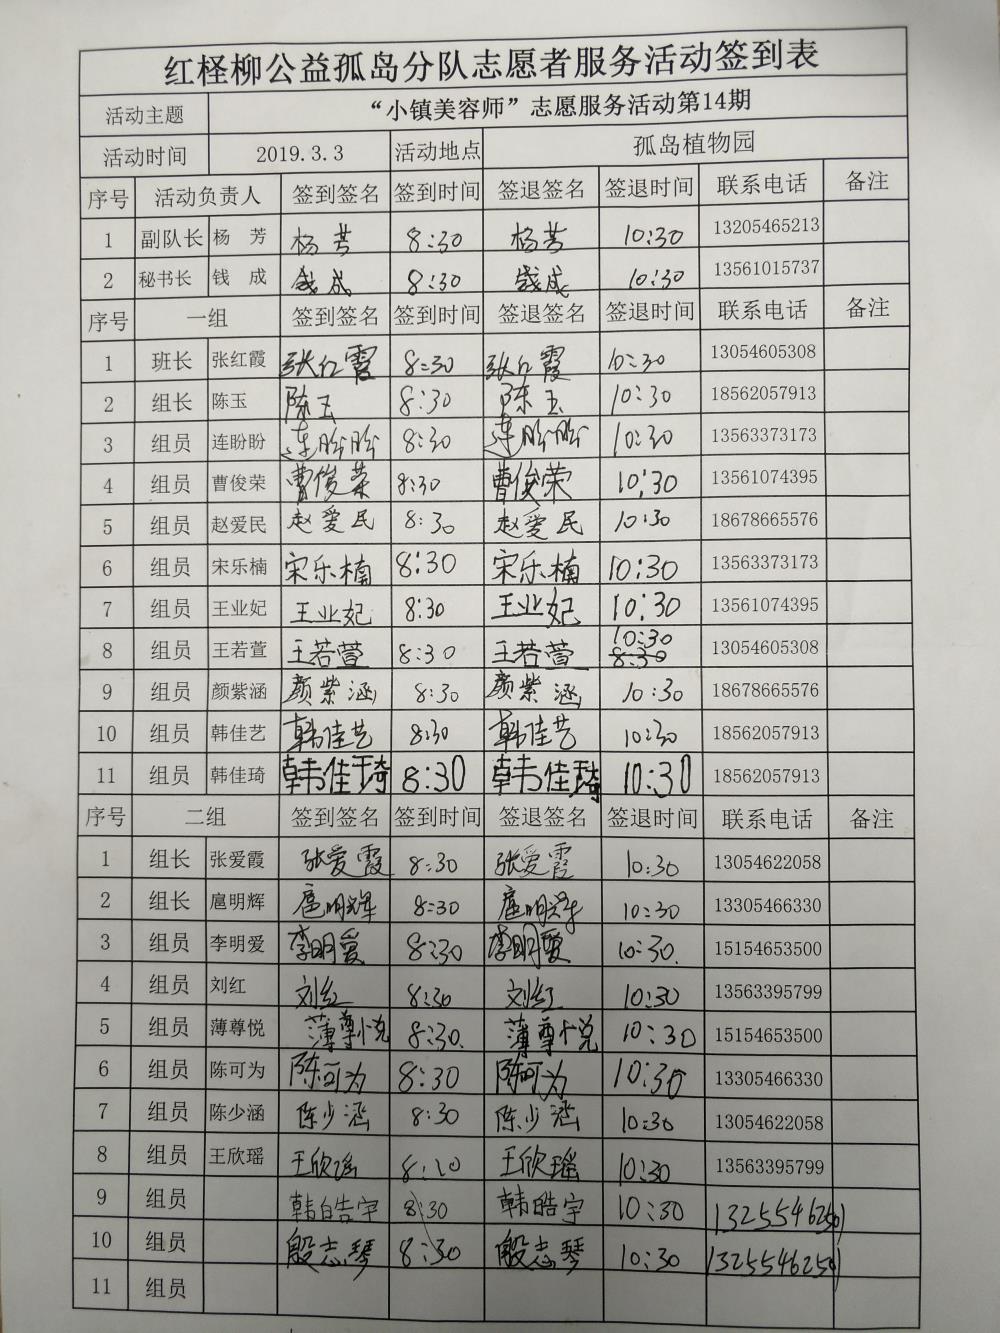 红柽柳公益孤岛分队志愿者服务活动签到表
活动主题 “小镇美容师”志愿服务活动第14期
活动时间 2019.3.3 活动地点 孤岛植物园
序号 活动负责人 签到签名 签到时间 签退签名 签退时间 联系电话 备注
1 副队长 杨 芳 杨芳 8:30 杨芳 10:30 13205465213
2 秘书长 钱 成 钱成 8:30 钱成 10:30 13561015737
序号 一组 签到签名 签到时间 签退签名 签退时间 联系电话 备注
1 班长 张红霞 张红霞 8:30 张红霞 10:30 13054605308
2 组长 陈玉 陈玉 8:30 陈玉 10:30 18562057913
3 组员 连盼盼 连盼盼 8:30 连盼盼 10:30 13563373173
4 组员 曹俊荣 曹俊荣 8:30 曹俊荣 10:30 13561074395
5 组员 赵爱民 赵爱民 8:30 赵爱民 10:30 18678665576
6 组员 宋乐楠 宋乐楠 8:30 宋乐楠 10:30 13563373173
7 组员 王业妃 王业妃 8:30 王业妃 10:30 13561074395
8 组员 王若萱 王若萱 8:30 王若萱 10:30 8:30 13054605308
9 组员 颜紫涵 颜紫涵 8:30 颜紫涵 10:30 18678665576
10 组员 韩佳艺 韩佳艺 8:30 韩佳艺 10:30 18562057913
11 组员 韩佳琦 韩佳琦 8:30 韩佳琦 10:30 18562057913
序号 二组 签到签名 签到时间 签退签名 签退时间 联系电话 备注
1 组长 张爱霞 张爱霞 8:30 张爱霞 10:30 13054622058
2 组长 扈明辉 扈明辉 8:30 扈明辉 10:30 13305466330
3 组员 李明爱 李明爱 8:30 李明爱 10:30. 15154653500
4 组员 刘红 刘红 8:30 刘红 10:30 13563395799
5 组员 薄尊悦 薄尊悦 8:30. 薄尊悦 10:30 15154653500
6 组员 陈可为 陈可为 8:30 陈可为 10:30 13305466330
7 组员 陈少涵 陈少涵 8:30 陈少涵 10:30 13054622058
8 组员 王欣瑶 王欣瑶 王欣瑶 10:30 13563395799
9 组员 韩皓宇 8:30 韩皓宇 10:30
10 组员 殷志琴 8:30 殷志琴 10:30
11 组员